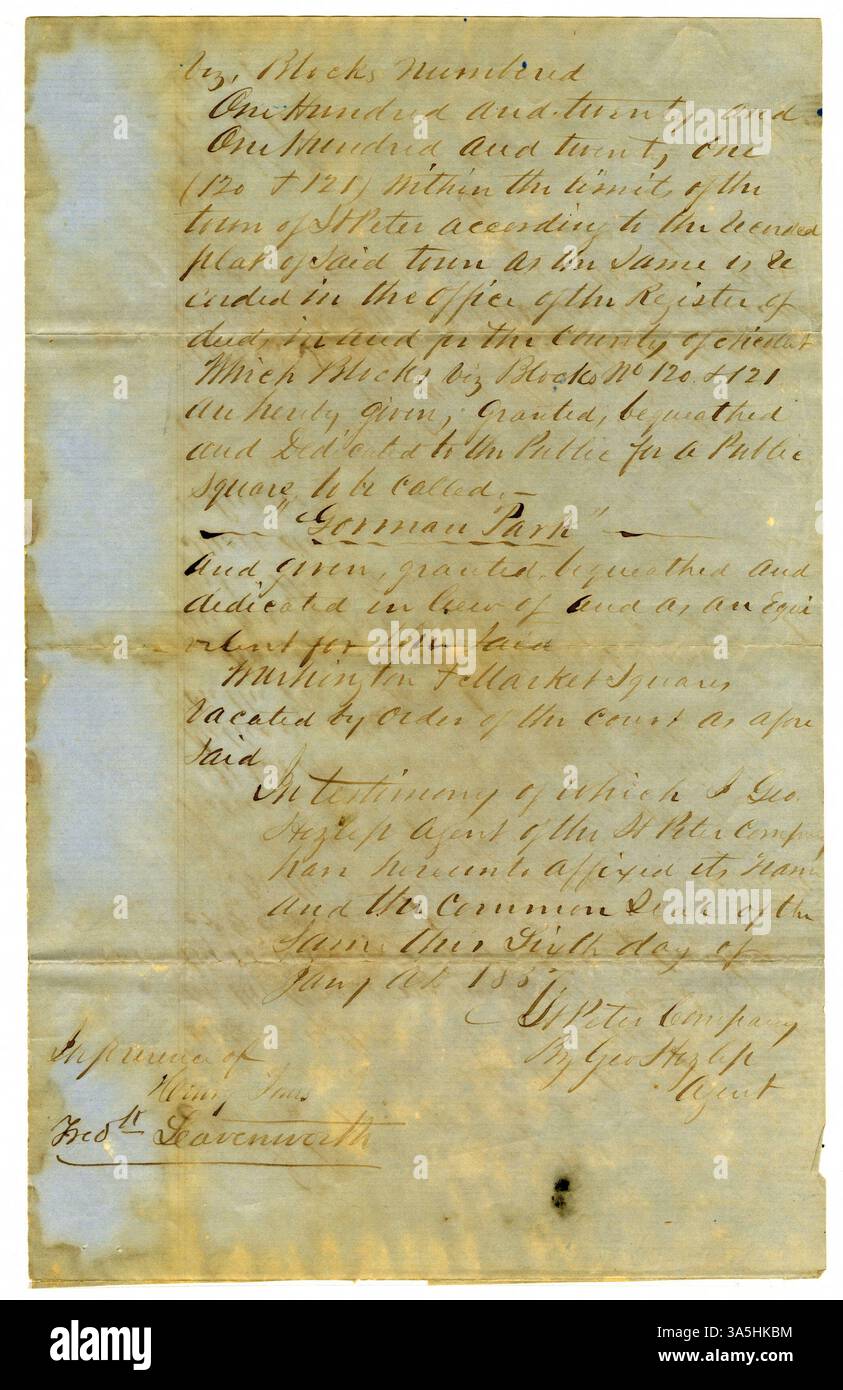 viz, Blocks Numbered
One Hundred and twenty and
One Hundred and twenty one
(120 & 121) Within the limits of the
town of St Peter according to the recorded
plat of said town as the same is re
corded in the office of the Register of
deeds in and for the County of Nicollet
Which Blocks viz Blocks No 120 & 121
are hereby given, granted, bequeathed
and Dedicated to the Public for a Public
Square to be called, —
— "Gorman Park" —
and given, granted, bequeathed and
dedicated in lieu of and as an Equi
valent for said
Washington & Market Squares
vacated by order of the court as afore
said
In testimony of which I Geo.
Hezlep agent of the St Peter Company
have hereunto affixed its name
and the Common Seal of the
same this Sixth day of
Jany AD 185
St Peter Company
By Geo Hezlep
Agent
In presence of
Henry
Fredk Leavenworth
alamy
Image ID: 3A5HKBM
www.alamy.com